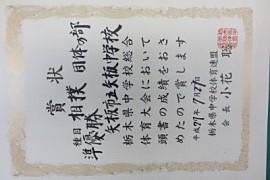 賞状
種目 相撲 団体の部
準優勝
矢板市立矢板中学校
栃木県中学校総合
体育大会において
頭書の成績をおさ
めたので賞します
平成 年7月27日
栃木県中学校体育連盟
会長 小花